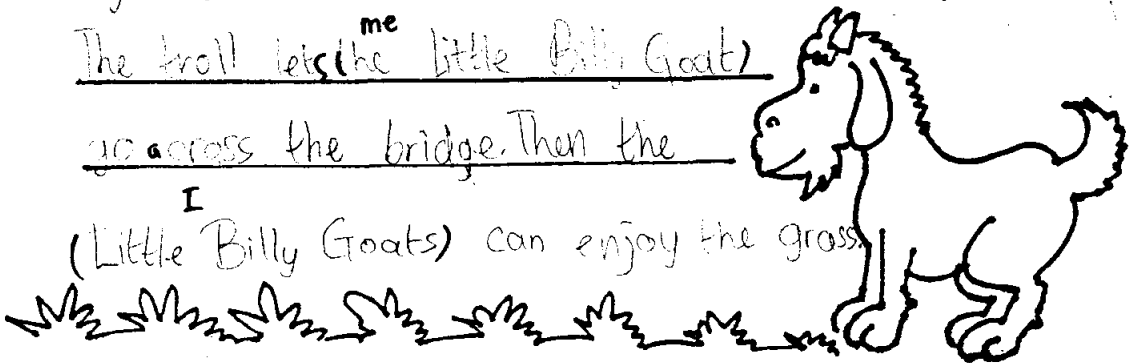 me
The troll lets (the Little Billy Goat)
go across the bridge. Then the
I
(Little Billy Goats) can enjoy the grass.